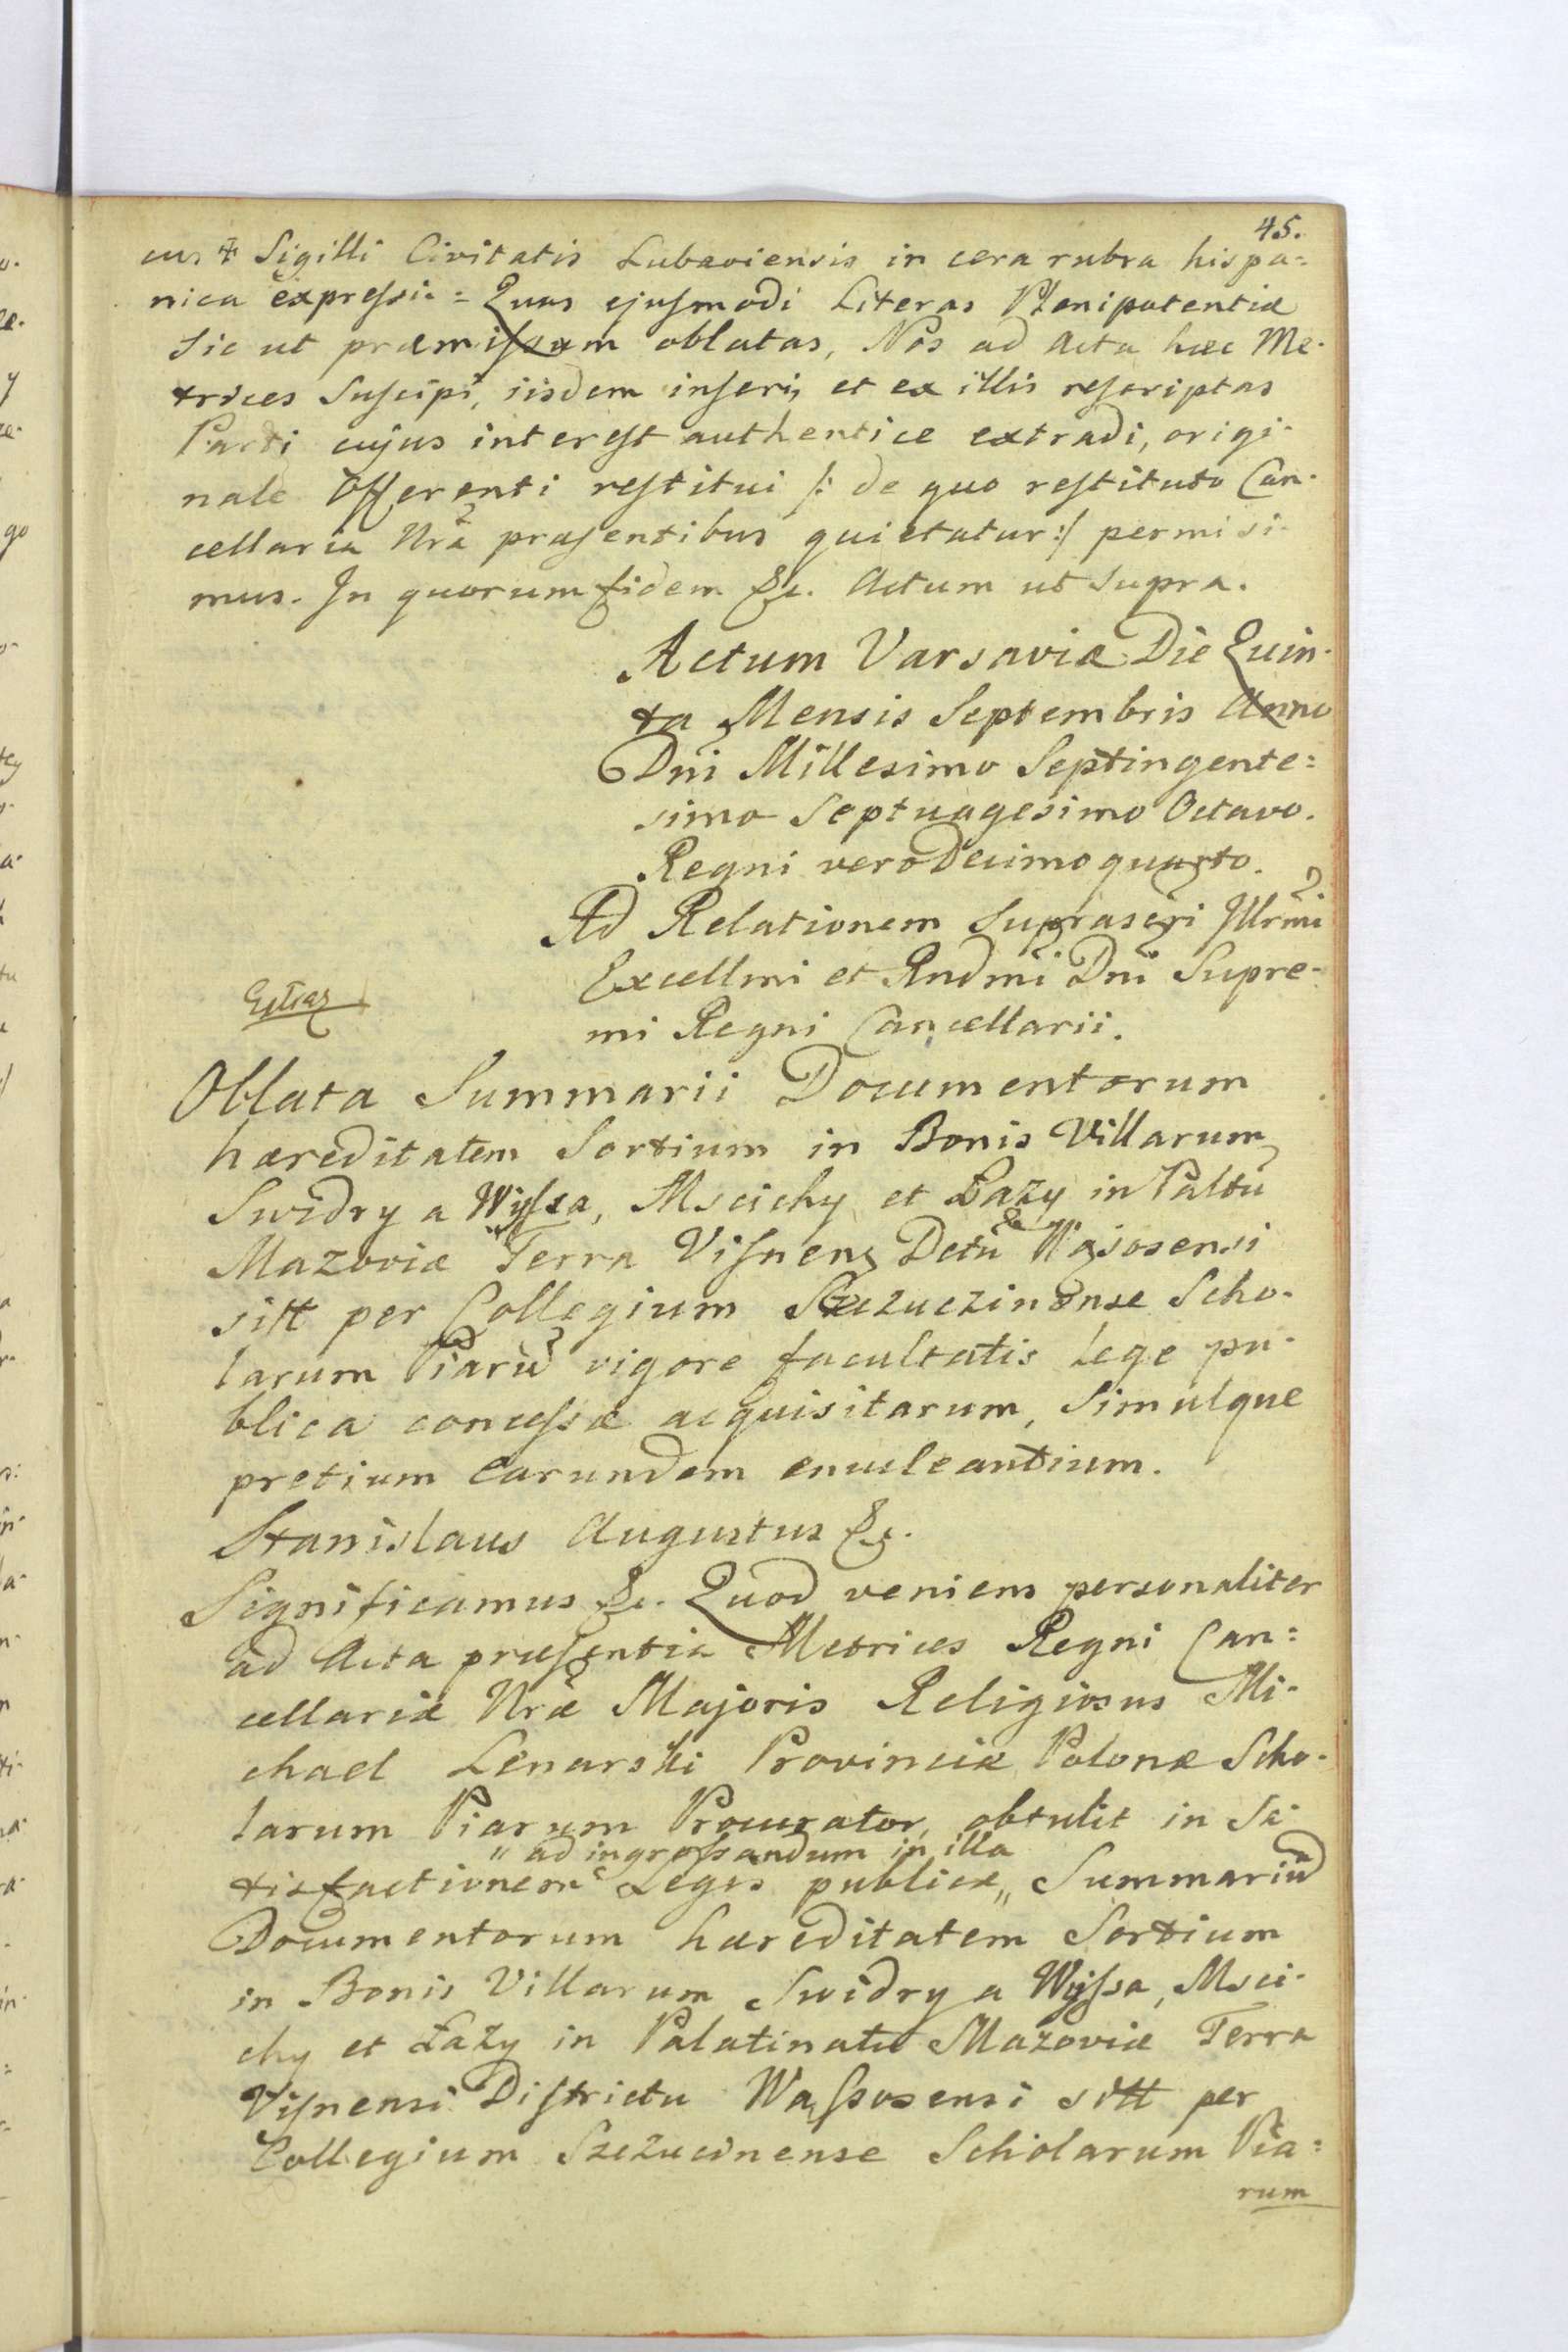 45.
cus ⌗ Sigilli Civitatis Lubaviensis in cera rubra hispa=
nica expressi = Quas ejusmodi Literas Plenipotentiæ
sic ut præmissum oblatas, Nos ad Acta hæc Me-
trices Suscipi, iisdem inseri, et ex illis rescriptas
Parti cujus interest authentice extradi, origi-
nale Offerenti restitui /: de quo restituto Can-
cellaria Nra præsentibus quietatur :/ permisi-
mus. In quorum fidem &c. Actum ut Supra.
Actum Varsaviæ Die Quin-
ta Mensis Septembris Anno
Dni Millesimo Septingente=
simo Septuagesimo Octavo.
Regni vero Decimo quarto.
Ad Relationem Suprascri Illrmi
Excellmi et Rndmi Dni Supre-
mi Regni Cancellarii.
Oblata Summarii Documentorum
hæreditatem Sortium in Bonis Villarum
Swidry a Wyssa, Mscichy et Łazy in Paltu
Mazoviæ Terra Visnen Dctu Wąsosensi
sitt per Collegium Szczuczinense Scho-
larum Piaru vigore facultatis Lege pu-
blica concessæ acquisitarum, Simulque
pretium Earundem enucleantium.
Stanislaus Augustus &c.
Significamus &c. Quod veniens personaliter
ad Acta præsentia Metrices Regni Can=
cellariæ Nræ Majoris Religiosus Mi-
chael Lenarski Provinciæ Polonæ Scho-
larum Piarum Procurator, obtulit in Sa-
" ad ingrossandum in illa
tisfactionem Legis publicæ " Summariu
Documentorum hæreditatem Sortium
in Bonis Villarum Swidry a Wyssa, Msci-
chy et Łazy in Palatinatu Mazoviæ Terra
Visnensi Districtu Wassosensi sitt per
Collegium Szczucinense Scholarum Pia=
rum